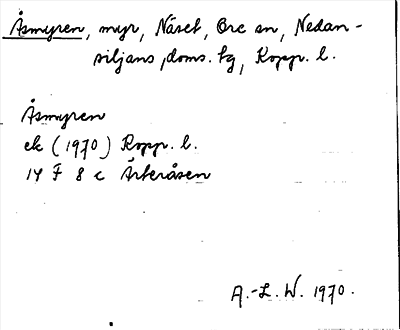 Åsmyren, myr, Näset, Ore sn, Nedan-
siljans, doms. tg, Kopp. l.
Åsmyren
ek (1970) Kopp. l.
14 F 8 c Ärteråsen
A.-L. W. 1970.